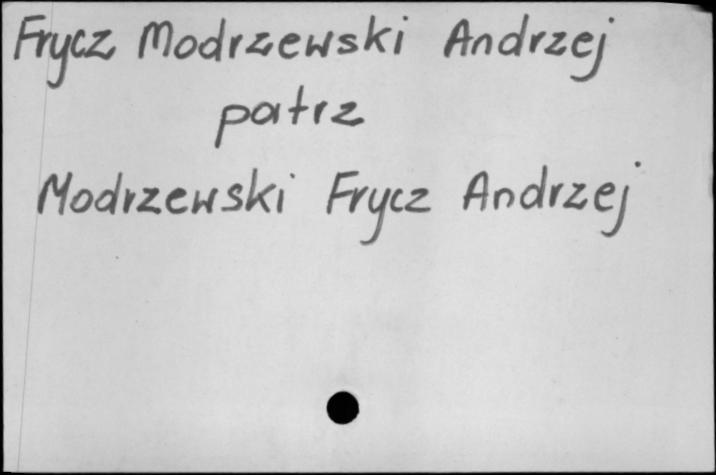 Frycz Modrzewski Andrzej
patrz
Modrzewski Frycz Andrzej